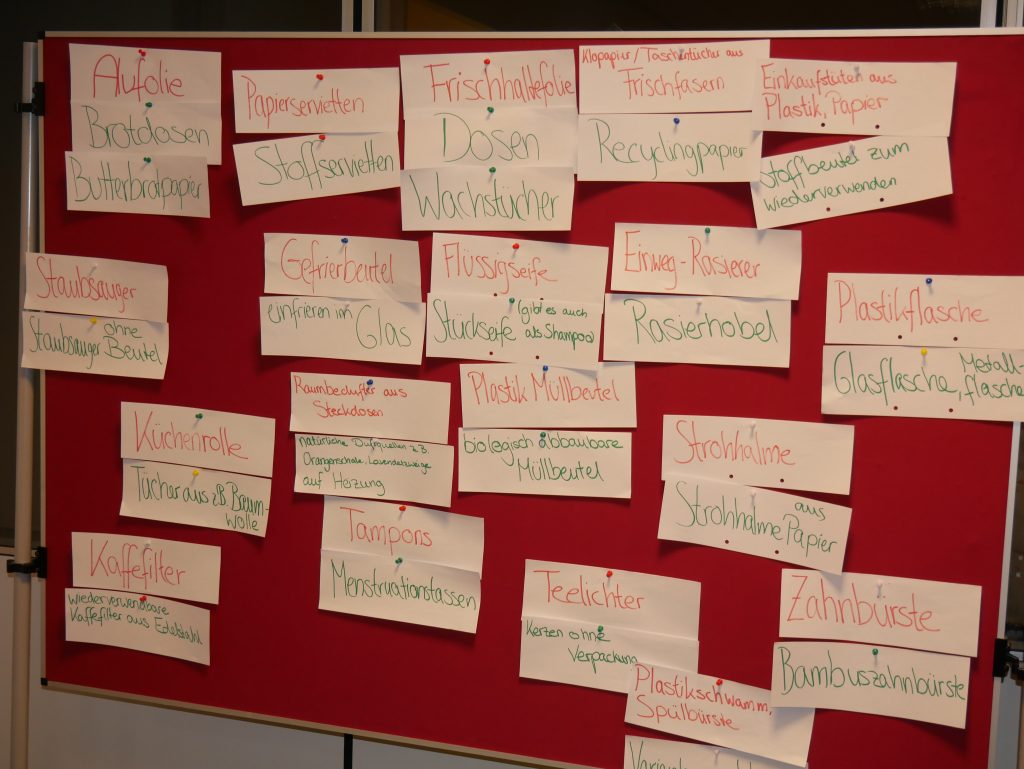 Alufolie
Brotdosen
Butterbrotpapier
Papierservietten
Stoffservietten
Frischhaltefolie
Dosen
Wachstücher
Klopapier/Taschentücher aus
Frischfasern
Recyclingpapier
Einkaufstüten aus
Plastik, Papier
Stoffbeutel zum
wiederverwenden
Staubsauger
Staubsauger ohne
Beutel
Gefrierbeutel
einfrieren im Glas
Flüssigseife
Stückseife (gibt es auch
als Shampoo)
Einweg-Rasierer
Rasierhobel
Plastikflasche
Glasflasche, Metall-
flasche
Küchenrolle
Tücher aus z.B. Baum-
wolle
Raumbedufter aus
Steckdosen
natürliche Duftquellen z.B.
Orangenschale, Lavendelzweige
auf Heizung
Plastik Müllbeutel
biologisch abbaubare
Müllbeutel
Strohhalme
Strohhalme aus
Papier
Kaffefilter
wiederverwendbare
Kaffefilter aus Edelstahl
Tampons
Menstruationstassen
Teelichter
Kerzen ohne
Verpackung
Zahnbürste
Bambuszahnbürste
Plastikschwamm,
Spülbürste